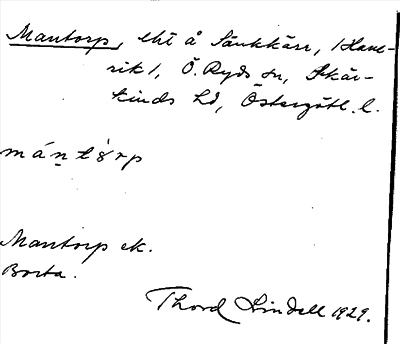 Mantorp, lht å Sänkkärr, /Hane-
rik/, Ö. Ryds sn, Skär-
kinds hd, Östergötl. l.
mán̠tɵ̀rp
Mantorp ek.
Borta.
Thord Lindell 1929.